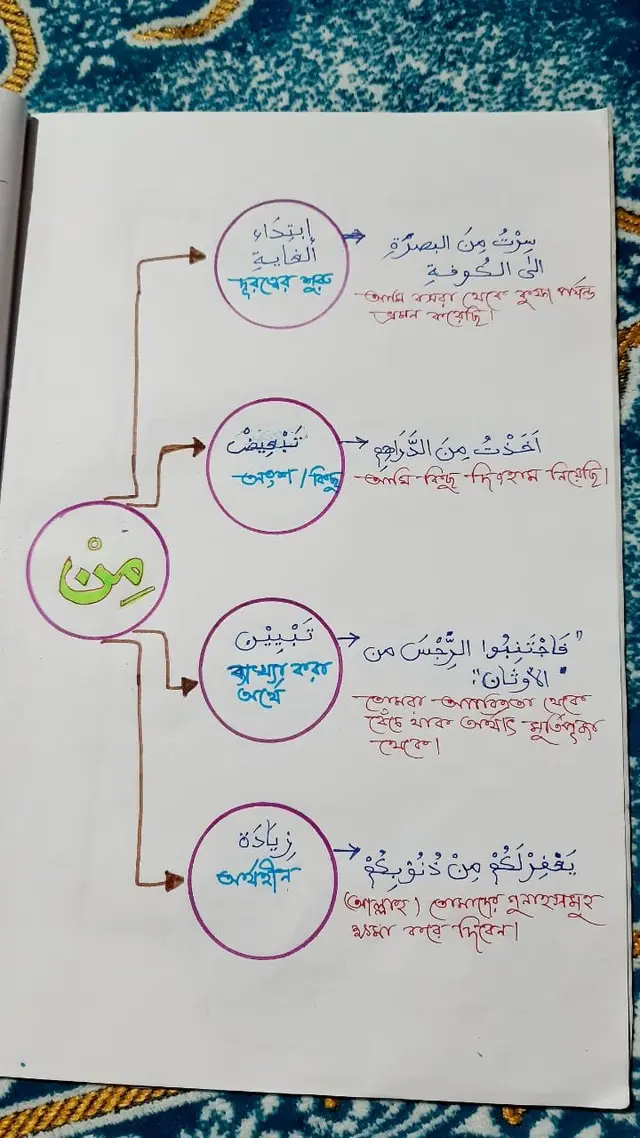 مِنْ
إبتِدَاء
الغَايَةِ
দূরত্বের শুরু
سِرْتُ مِنَ البصرَةِ
الَى الكُوفةِ
আমি বসরা থেকে কুফা পর্যন্ত
ভ্রমন করেছি।
تَبْعِيْضْ
অংশ / কিছু
اَخَذْتُ مِنَ الدَّرَاهِمِ
আমি কিছু দিরহাম নিয়েছি।
تَبْيِيْن
ব্যাখ্যা করা
অর্থে
"فَاجْتَنِبُوا الرِّجْسَ من
الأوثَان"
তোমরা অপবিত্রতা থেকে
বেঁচে থাক অর্থাৎ মূর্তিপূজা
থেকে।
زِيَادَة
অর্থহীন
يَغْفِرْلَكُمْ مِنْ ذُنُوْبِكُمْ
(আল্লাহ) তোমাদের গুনাহসমূহ
ক্ষমা করে দিবেন।